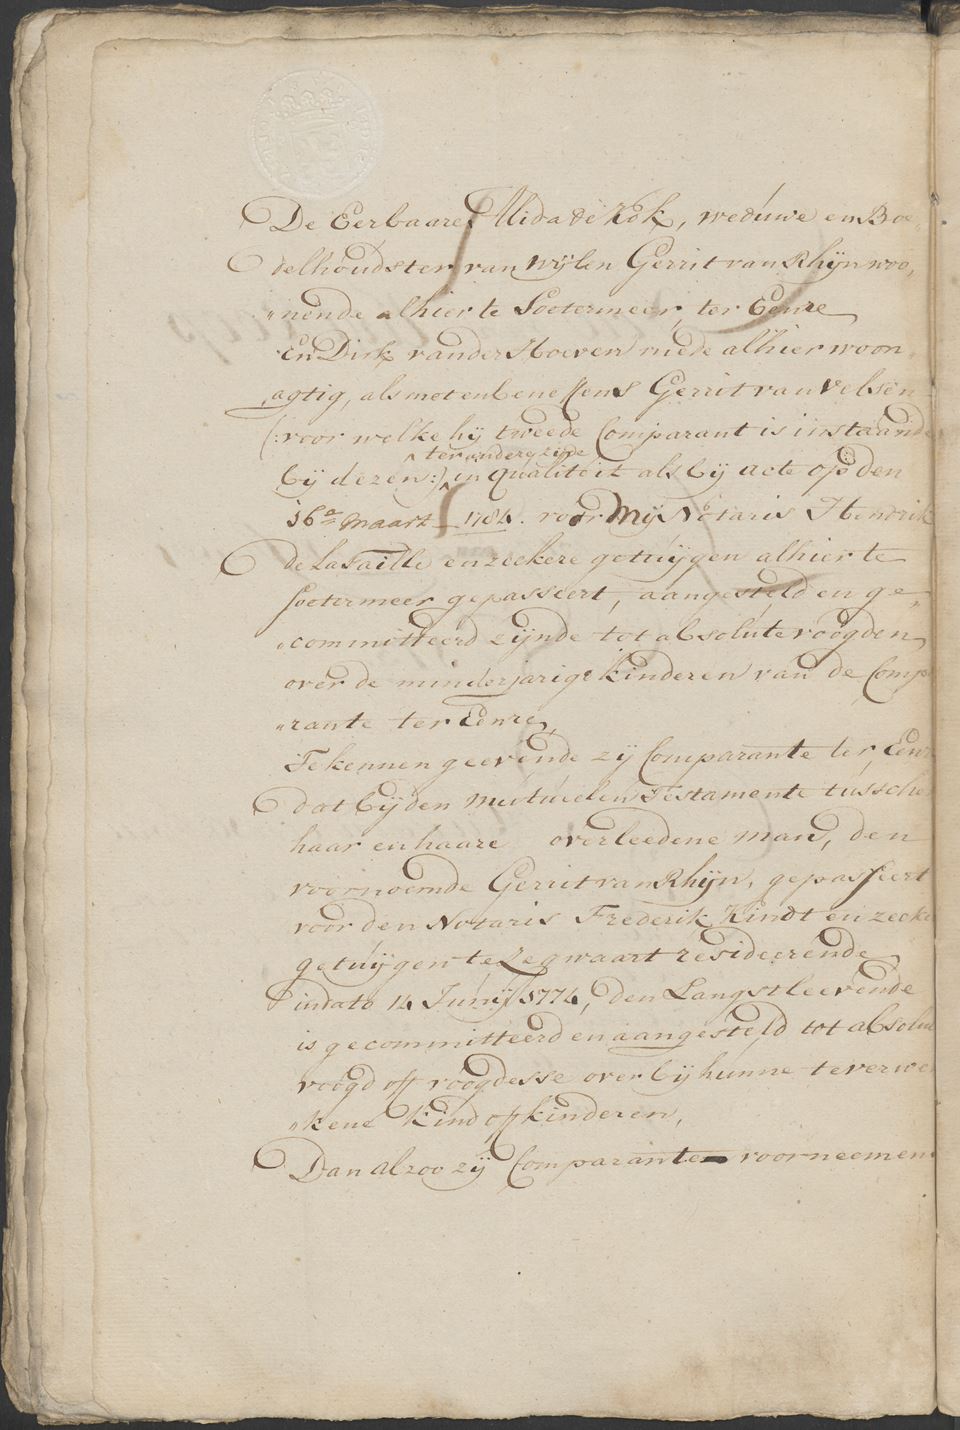 De Eerbaare Alida de Kok, weduwe en Boe
delhoudster van wylen Gerrit van Rhyn woo,
"nende alhier te Soetermeer, ter Eenre
En Dirk van der Hoeven mede alhier woon
agtig, als met en benessens Gerrit van Velsen
(: voor welke hij tweede Comparant is instaande
ter andere zijde
bij dezen :) in qualiteit als bij acte op den
16e Maart 1784. voor Mij Notaris Hendrik
de Lasaille en zeekere getuijgen alhier te
Soetermeer gepasseert, aangesteld en ge,
"committeerd zijnde tot absolute voogden
over de minderjarige Kinderen van de Comp
"rante ter Eenre,
Te kennen geevende zij Comparante ter Eenr
dat bij den Mutueelen Testamente tussche
haar en haare overleedene man, den
voornoemde Gerrit van Rhijn, gepasseert
voor den Notaris Frederik Kindt en zeeke
getuijgen te Zegwaart resideerende
in dato 14 Junij 1774, den Langstleevende
is gecommitteerd en aangesteld tot absolu
voogd off voogdesse over bij hunne te verwe
"kene Kind off kinderen,
Dan alzoo zij Comparante voorneemen